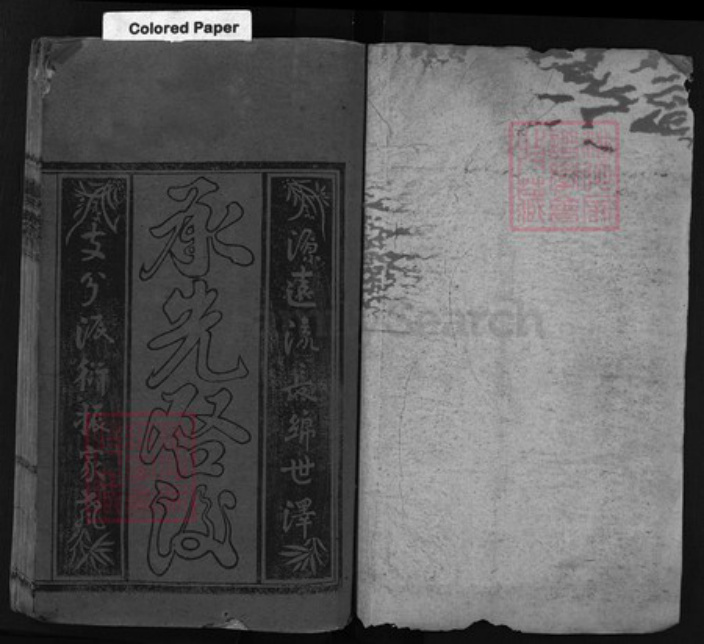 Colored Paper
源遠流長綿世澤
承先啓後
支分派衍振家聲
FamilySearch